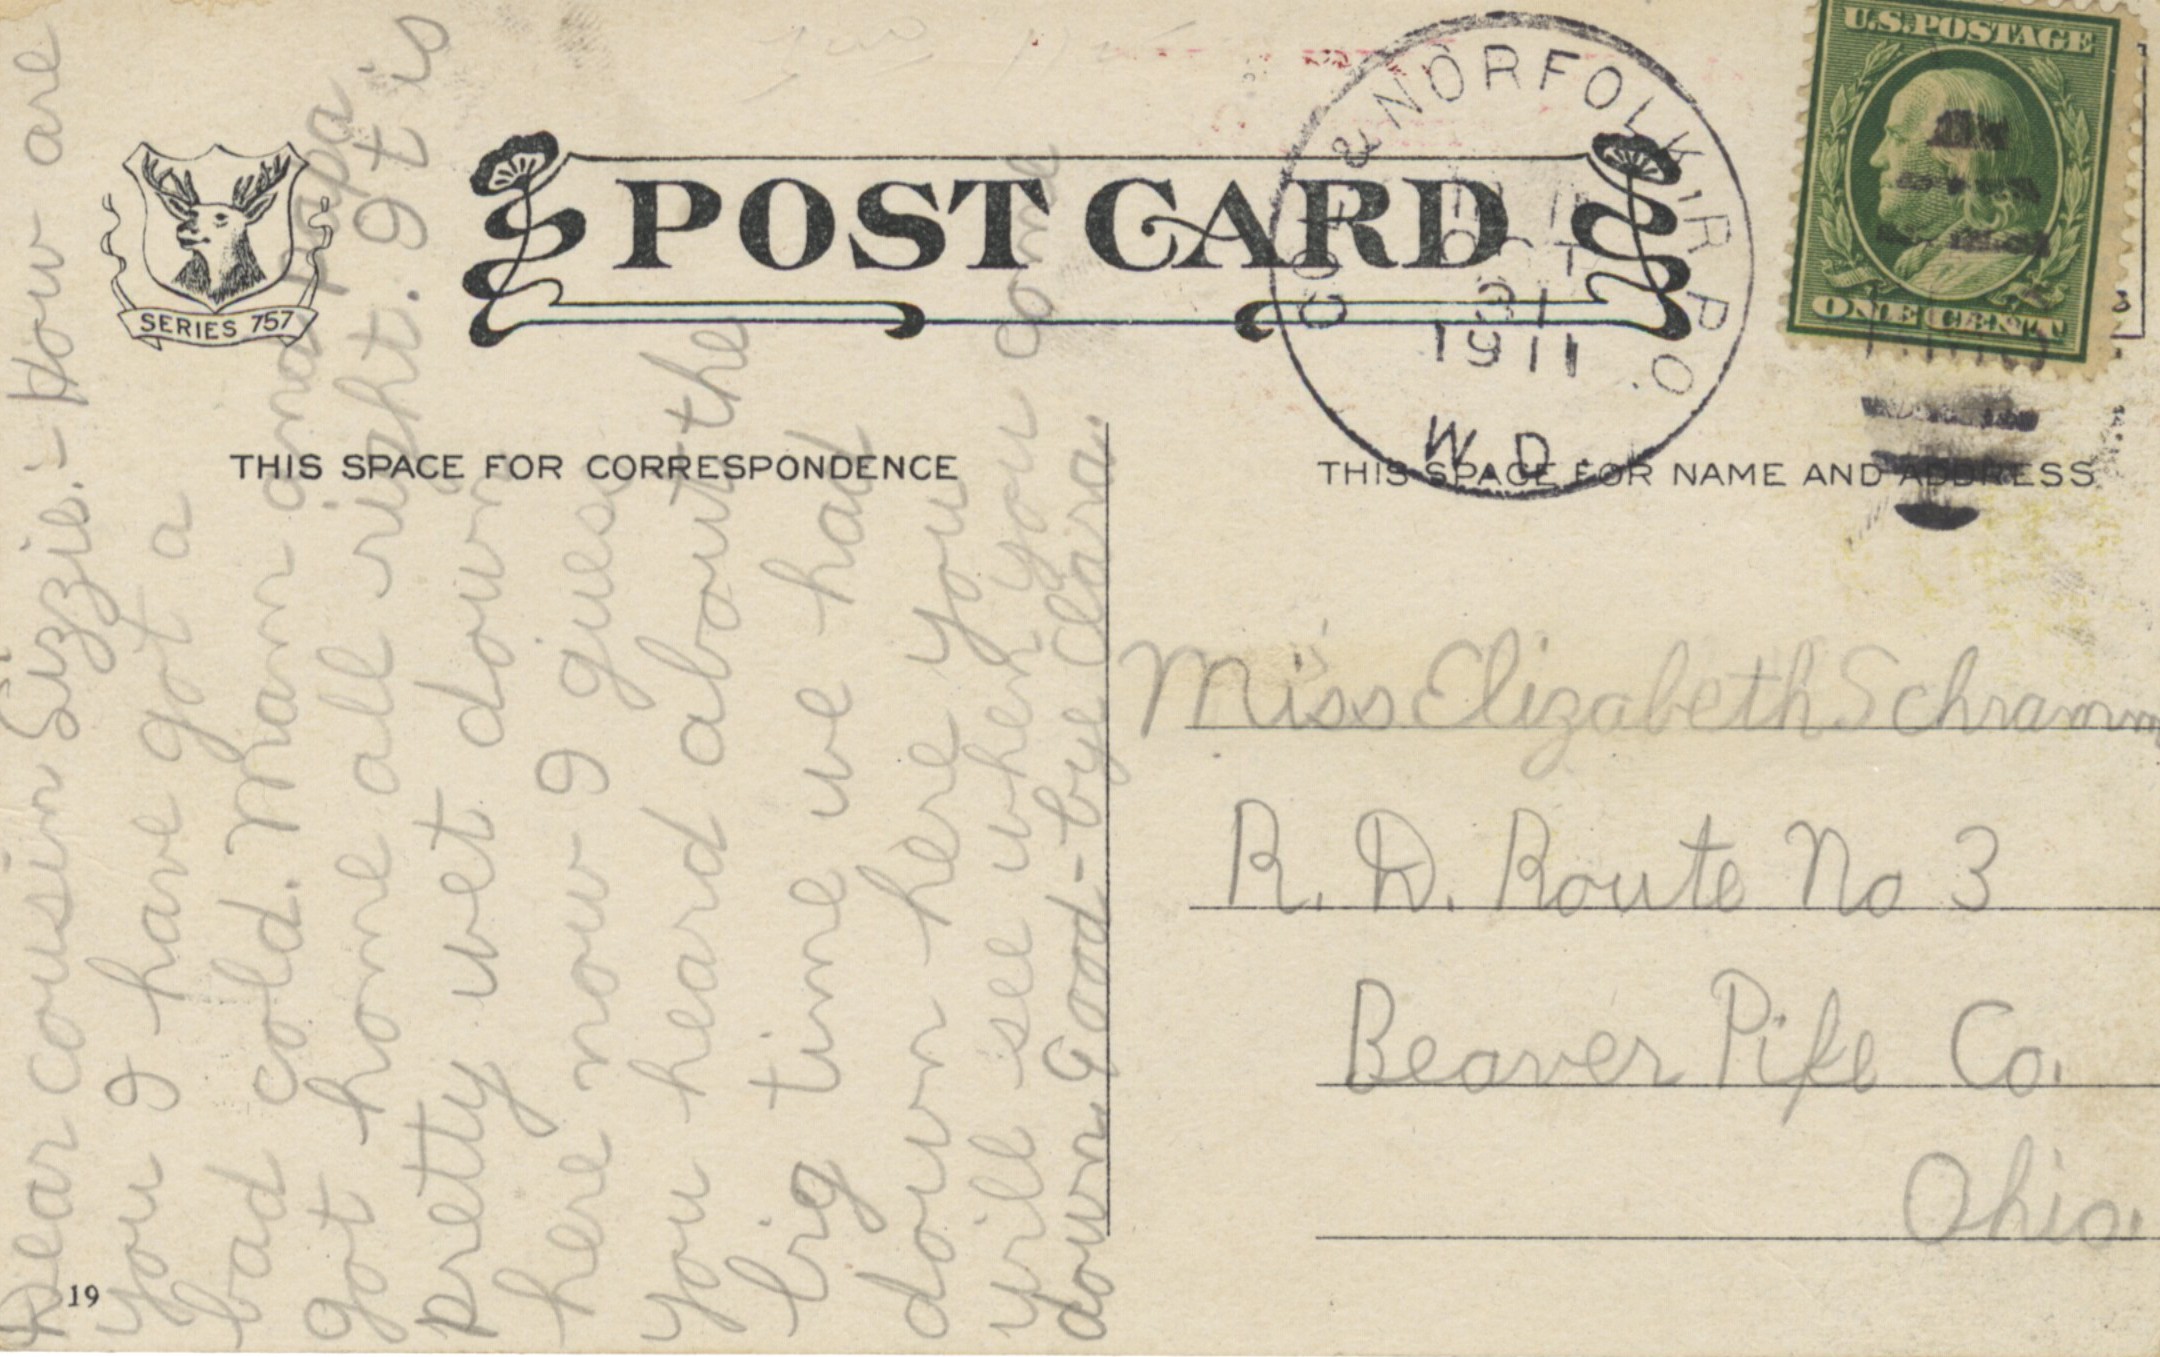 SERIES 757
POST CARD
COL. & NORFOLK, R.P.O.
OCT
31
1911
W.D.
U.S. POSTAGE
ONE CENT
THIS SPACE FOR CORRESPONDENCE
THIS SPACE FOR NAME AND ADDRESS
Dear cousin Lizzie:- How are
you I have got a
bad cold. Mam and papa
got home all right. It is
pretty wet down
here now I guess
you heard about the
big time we had
down here you
will see when you come
down. Good-bye Clara.
Miss Elizabeth Schramm
R. D. Route No 3
Beaver Pike Co.
Ohio.
19